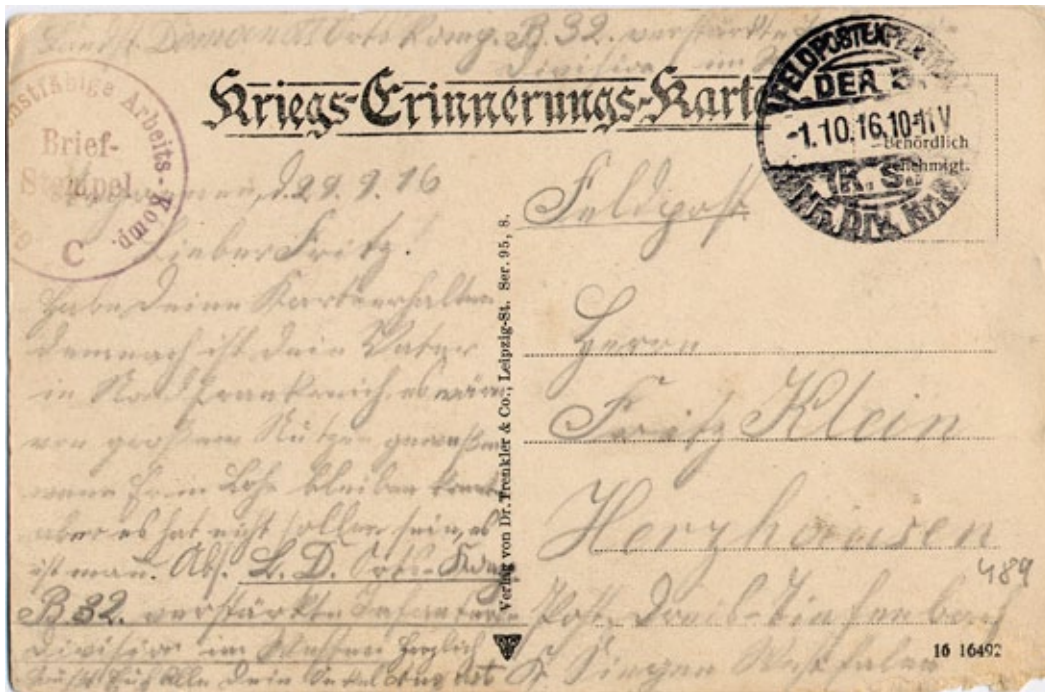 Landst. Domann Arb. Komp. B. 32. verstärkte
Division im
Kriegs-Erinnerungs-Karte
FELDPOSTEXPEDITION
DER 3.
-1.10.16.10-11V
(K. S.)
Behördlich
genehmigt.
Arbeits-Komp.
Brief-
Stempel
C
d. 29. 9. 16
Lieber Fritz!
Habe Deine Karte erhalten
demnach ist dein Vater
in Nord Frankreich. es wäre
von großem Nutzen gewesen
wenn Er in Lohe bleiben konnte
aber es hat nicht sollen sein, es
ist man. Abs. L. D. Arb. Komp.
B 32. verstärkte Infanterie
Division im Westen
Gruß für Alle Dein
Verlag von Dr. Trenkler & Co., Leipzig-St. Ser. 95, 8.
Feldpost
Herrn
Fritz Klein
Herzhausen
489
Post. Dreis-Tiefenbach
Kr. Siegen Westfalen
16 16492